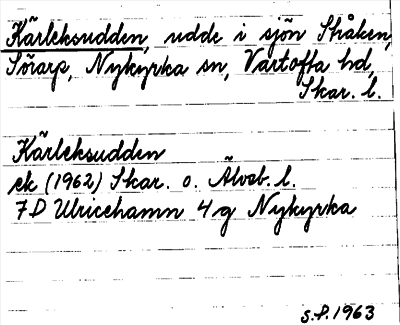 Kärleksudden, udde i sjön Stråken,
Sörarp, Nykyrka sn, Vartofta hd,
Skar. l.
Kärleksudden
ek (1962) Skar. o. Älvsb. l.
7D Ulricehamn 4g Nykyrka
S.P. 1963